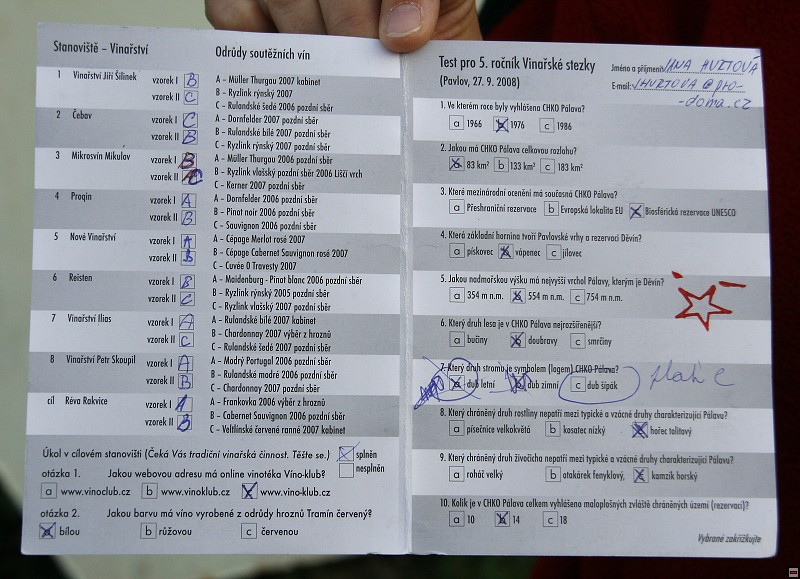 Stanoviště – Vinařství
Odrůdy soutěžních vín
1 Vinařství Jiří Šilinek vzorek I B
vzorek II C
A – Müller Thurgau 2007 kabinet
B – Ryzlink rýnský 2007
C – Rulandské šedé 2006 pozdní sběr
2 Čebav vzorek I C
vzorek II B
A – Dornfelder 2007 pozdní sběr
B – Rulandské bílé 2007 pozdní sběr
C – Ryzlink rýnský 2007 pozdní sběr
3 Mikrosvín Mikulov vzorek I B
vzorek II C
A – Müller Thurgau 2006 pozdní sběr
B – Ryzlink vlašský pozdní sběr 2006 Liščí vrch
C – Kerner 2007 pozdní sběr
4 Proqin vzorek I A
vzorek II B
A – Dornfelder 2006 pozdní sběr
B – Pinot noir 2006 pozdní sběr
C – Sauvignon 2006 pozdní sběr
5 Nové Vinařství vzorek I A
vzorek II B
A – Cépage Merlot rosé 2007
B – Cépage Cabernet Sauvignon rosé 2007
C – Cuvée O Travesty 2007
6 Reisten vzorek I B
vzorek II C
A – Maidenburg - Pinot blanc 2006 pozdní sběr
B – Ryzlink rýnský 2005 pozdní sběr
C – Ryzlink vlašský 2007 pozdní sběr
7 Vinařství Ilias vzorek I A
vzorek II C
A – Rulandské bílé 2007 kabinet
B – Chardonnay 2007 výběr z hroznů
C – Rulandské šedé 2007 pozdní sběr
8 Vinařství Petr Skoupil vzorek I A
vzorek II B
A – Modrý Portugal 2006 pozdní sběr
B – Rulandské modré 2006 pozdní sběr
C – Chardonnay 2007 pozdní sběr
cíl Réva Rakvice vzorek I A
vzorek II B
A – Frankovka 2006 výběr z hroznů
B – Cabernet Sauvignon 2006 pozdní sběr
C – Veltlínské červené ranné 2007 kabinet
Úkol v cílovém stanovišti (Čeká Vás tradiční vinařská činnost. Těšte se.) splněn
nesplněn
otázka 1. Jakou webovou adresu má online vinotéka Víno-klub?
a www.vinoclub.cz b www.vinoklub.cz c www.vino-klub.cz
otázka 2. Jakou barvu má víno vyrobené z odrůdy hroznů Tramín červený?
a bílou b růžovou c červenou
Test pro 5. ročník Vinařské stezky
(Pavlov, 27. 9. 2008)
Jméno a příjmení: JANA HURTOVÁ
E-mail: JHURTOVA@pro-
-doma.cz
1. Ve kterém roce byly vyhlášena CHKO Pálava?
a 1966 b 1976 c 1986
2. Jakou má CHKO Pálava celkovou rozlohu?
a 83 km² b 133 km² c 183 km²
3. Které mezinárodní ocenění má současná CHKO Pálava?
a Přeshraniční rezervace b Evropská lokalita EU c Biosférická rezervace UNESCO
4. Která základní hornina tvoří Pavlovské vrhy a rezervaci Děvín?
a pískovec b vápenec c jílovec
5. Jakou nadmořskou výšku má nejvyšší vrchol Pálavy, kterým je Děvín?
a 354 m n.m. b 554 m n.m. c 754 m n.m.
6. Který druh lesa je v CHKO Pálava nejrozšířenější?
a bučiny b doubravy c smrčiny
7. Který druh stromu je symbolem (logem) CHKO Pálava?
a dub letní b dub zimní c dub šipák platí C
8. Který chráněný druh rostliny nepatří mezi typické a vzácné druhy charakterizující Pálavu?
a písečnice velkokvětá b kosatec nízký c hořec tolitový
9. Který chráněný druh živočicha nepatří mezi typické a vzácné druhy charakterizující Pálavu?
a roháč velký b otakárek fenyklový, c kamzík horský
10. Kolik je v CHKO Pálava celkem vyhlášeno maloplošných zvláště chráněných území (rezervací)?
a 10 b 14 c 18
Vybrané zakřížkujte